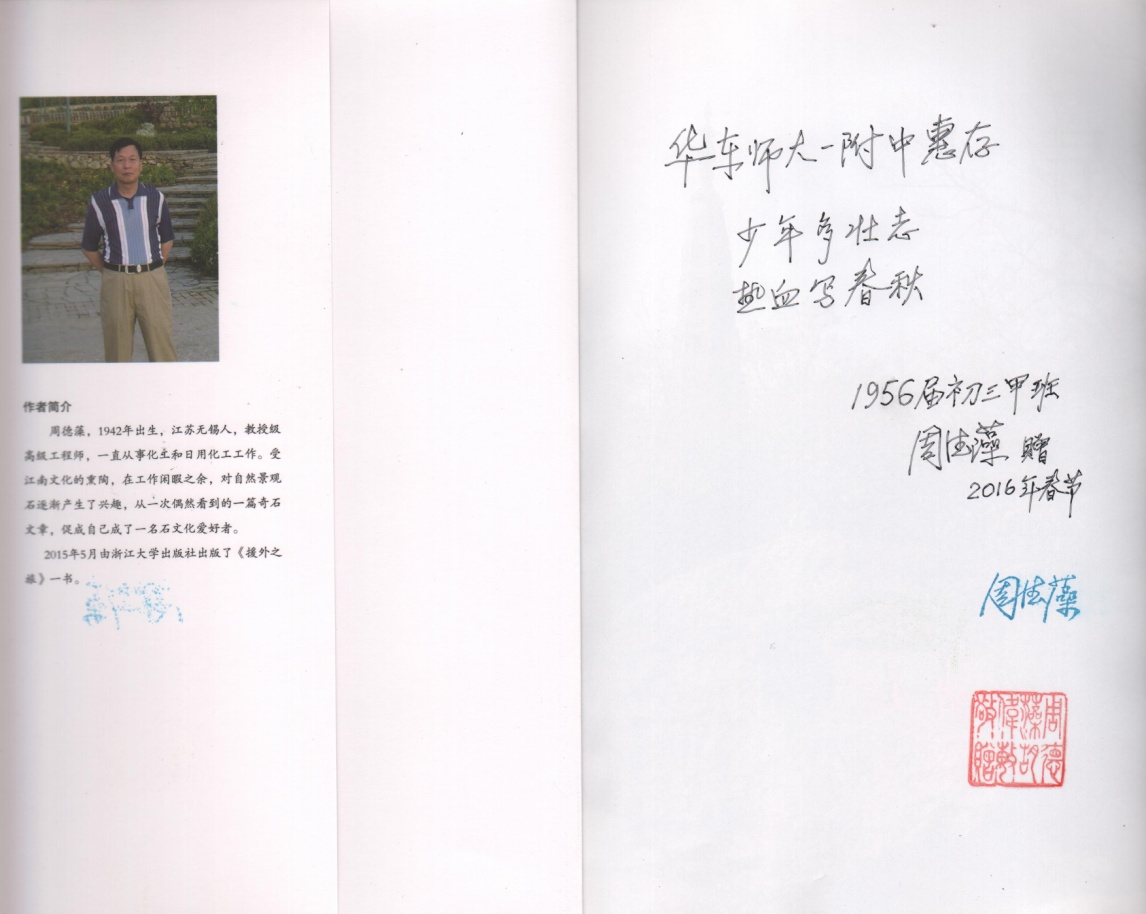 作者简介
周德藻，1942年出生，江苏无锡人，教授级
高级工程师，一直从事化工和日用化工工作。受
江南文化的熏陶，在工作闲暇之余，对自然景观
石逐渐产生了兴趣，从一次偶然看到的一篇奇石
文章，促成自己成了一名石文化爱好者。
2015年5月由浙江大学出版社出版了《援外之
旅》一书。
华东师大一附中惠存
少年多壮志
热血写春秋
1956届初三甲班
周德藻 赠
2016年春节
周德藻
周德
藻胡
伟敏
敬赠